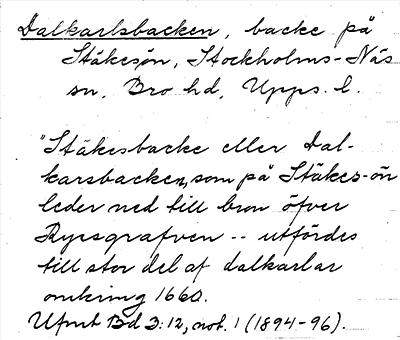 Dalkarlsbacken, backe på
Stäkesön, Stockholms-Näs
sn, Bro hd, Upps. l.
"Stäkesbacke eller Dal-
karsbacken, som på Stäkes-ön
leder ned till bron öfver
Ryssgrafven -- utfördes
till stor del af dalkarlar
omkring 1660.
Ufmt Bd 3:12, not. 1 (1894-96).